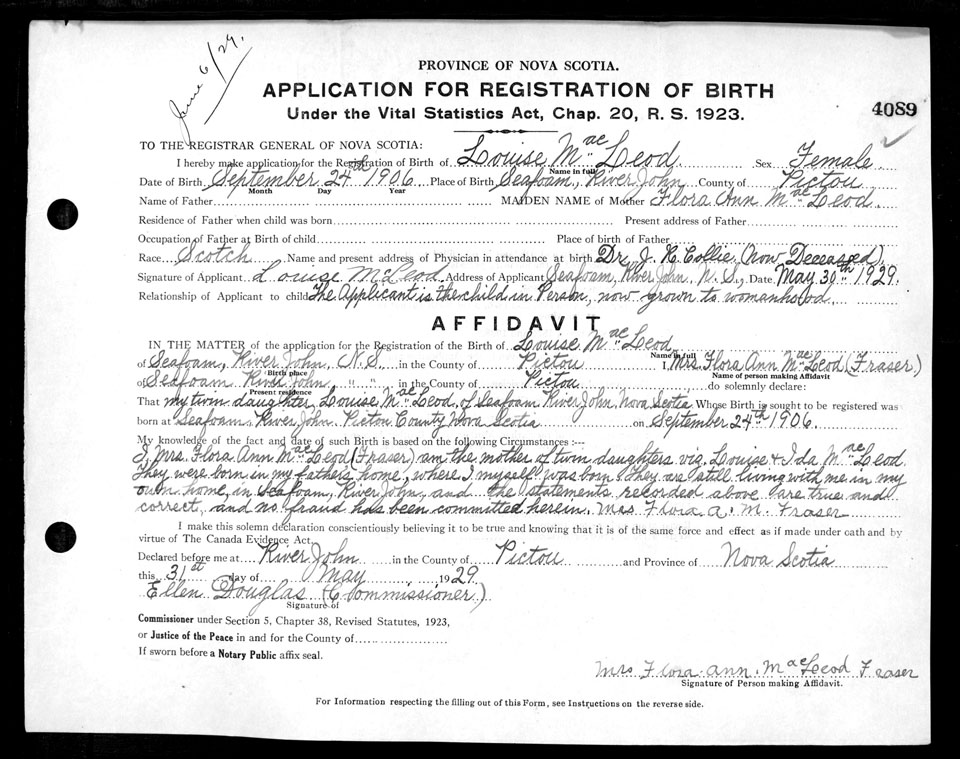 June 6/29.
PROVINCE OF NOVA SCOTIA.
APPLICATION FOR REGISTRATION OF BIRTH
Under the Vital Statistics Act, Chap. 20, R. S. 1923.
4089
TO THE REGISTRAR GENERAL OF NOVA SCOTIA:
I hereby make application for the Registration of Birth of Louise MacLeod. Sex Female
Name in full
Date of Birth September 24th 1906 Place of Birth Seafoam, River John County of Pictou
Month Day Year
Name of Father MAIDEN NAME of Mother Flora Ann MacLeod.
Residence of Father when child was born Present address of Father
Occupation of Father at Birth of child Place of birth of Father
Race Scotch Name and present address of Physician in attendance at birth Dr. J. K. Collie, (now Deceased)
Signature of Applicant Louise McLeod Address of Applicant Seafoam, River John, N. S., Date May 30th 1929.
Relationship of Applicant to child The Applicant is the child in Person, now grown to womanhood
AFFIDAVIT
IN THE MATTER of the application for Registration of the Birth of Louise MacLeod
Name in full
of Seafoam, River John, N.S. in the County of Pictou I, Mrs. Flora Ann MacLeod (Fraser)
Birth place Name of person making Affidavit
of Seafoam River John, " " in the County of Pictou do solemnly declare:
Present residence
That my twin daughter, Louise MacLeod, of Seafoam River John, Nova Scotia Whose Birth is sought to be registered was
born at Seafoam, River John. Pictou County Nova Scotia on September 24th 1906.
My knowledge of the fact and date of such Birth is based on the following Circumstances :—
I, Mrs. Flora Ann MacLeod (Fraser) am the mother of twin daughters viz, Louise & Ida MacLeod.
They were born in my fathers home, where I myself was born & They are still living with me in my
own home, in Seafoam, River John, and the statements recorded above are true and
correct, and no fraud has been committed herein. Mrs Flora A. M. Fraser
I make this solemn declaration conscientiously believing it to be true and knowing that it is of the same force and effect as if made under oath and by
virtue of The Canada Evidence Act.
Declared before me at River John in the County of Pictou and Province of Nova Scotia
this 31st day of May 1929
Ellen Douglas (Commissioner)
Signature of
Commissioner under Section 5, Chapter 38, Revised Statutes, 1923,
or Justice of the Peace in and for the County of
If sworn before a Notary Public affix seal.
Mrs Flora Ann. MacLeod Fraser
Signature of Person making Affidavit.
For Information respecting the filling out of this Form, see Instructions on the reverse side.